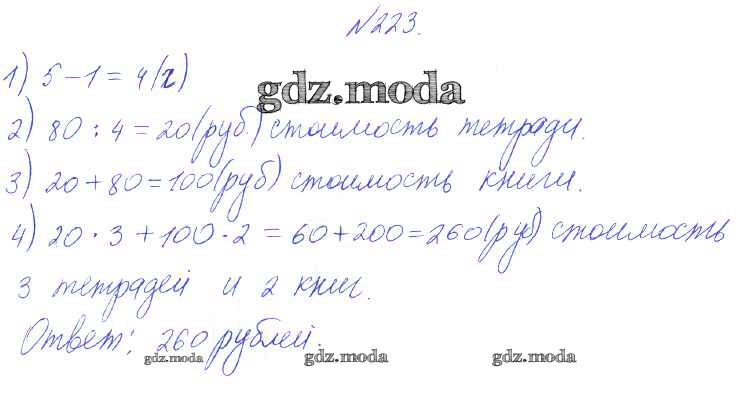 №223.
1) 5-1=4(г)
gdz.moda
2) 80:4=20(руб) стоимость тетради.
3) 20+80=100(руб) стоимость книги.
4) 20·3+100·2=60+200=260(руб) стоимость
3 тетрадей и 2 книг.
Ответ: 260 рублей.
gdz.moda gdz.moda gdz.moda